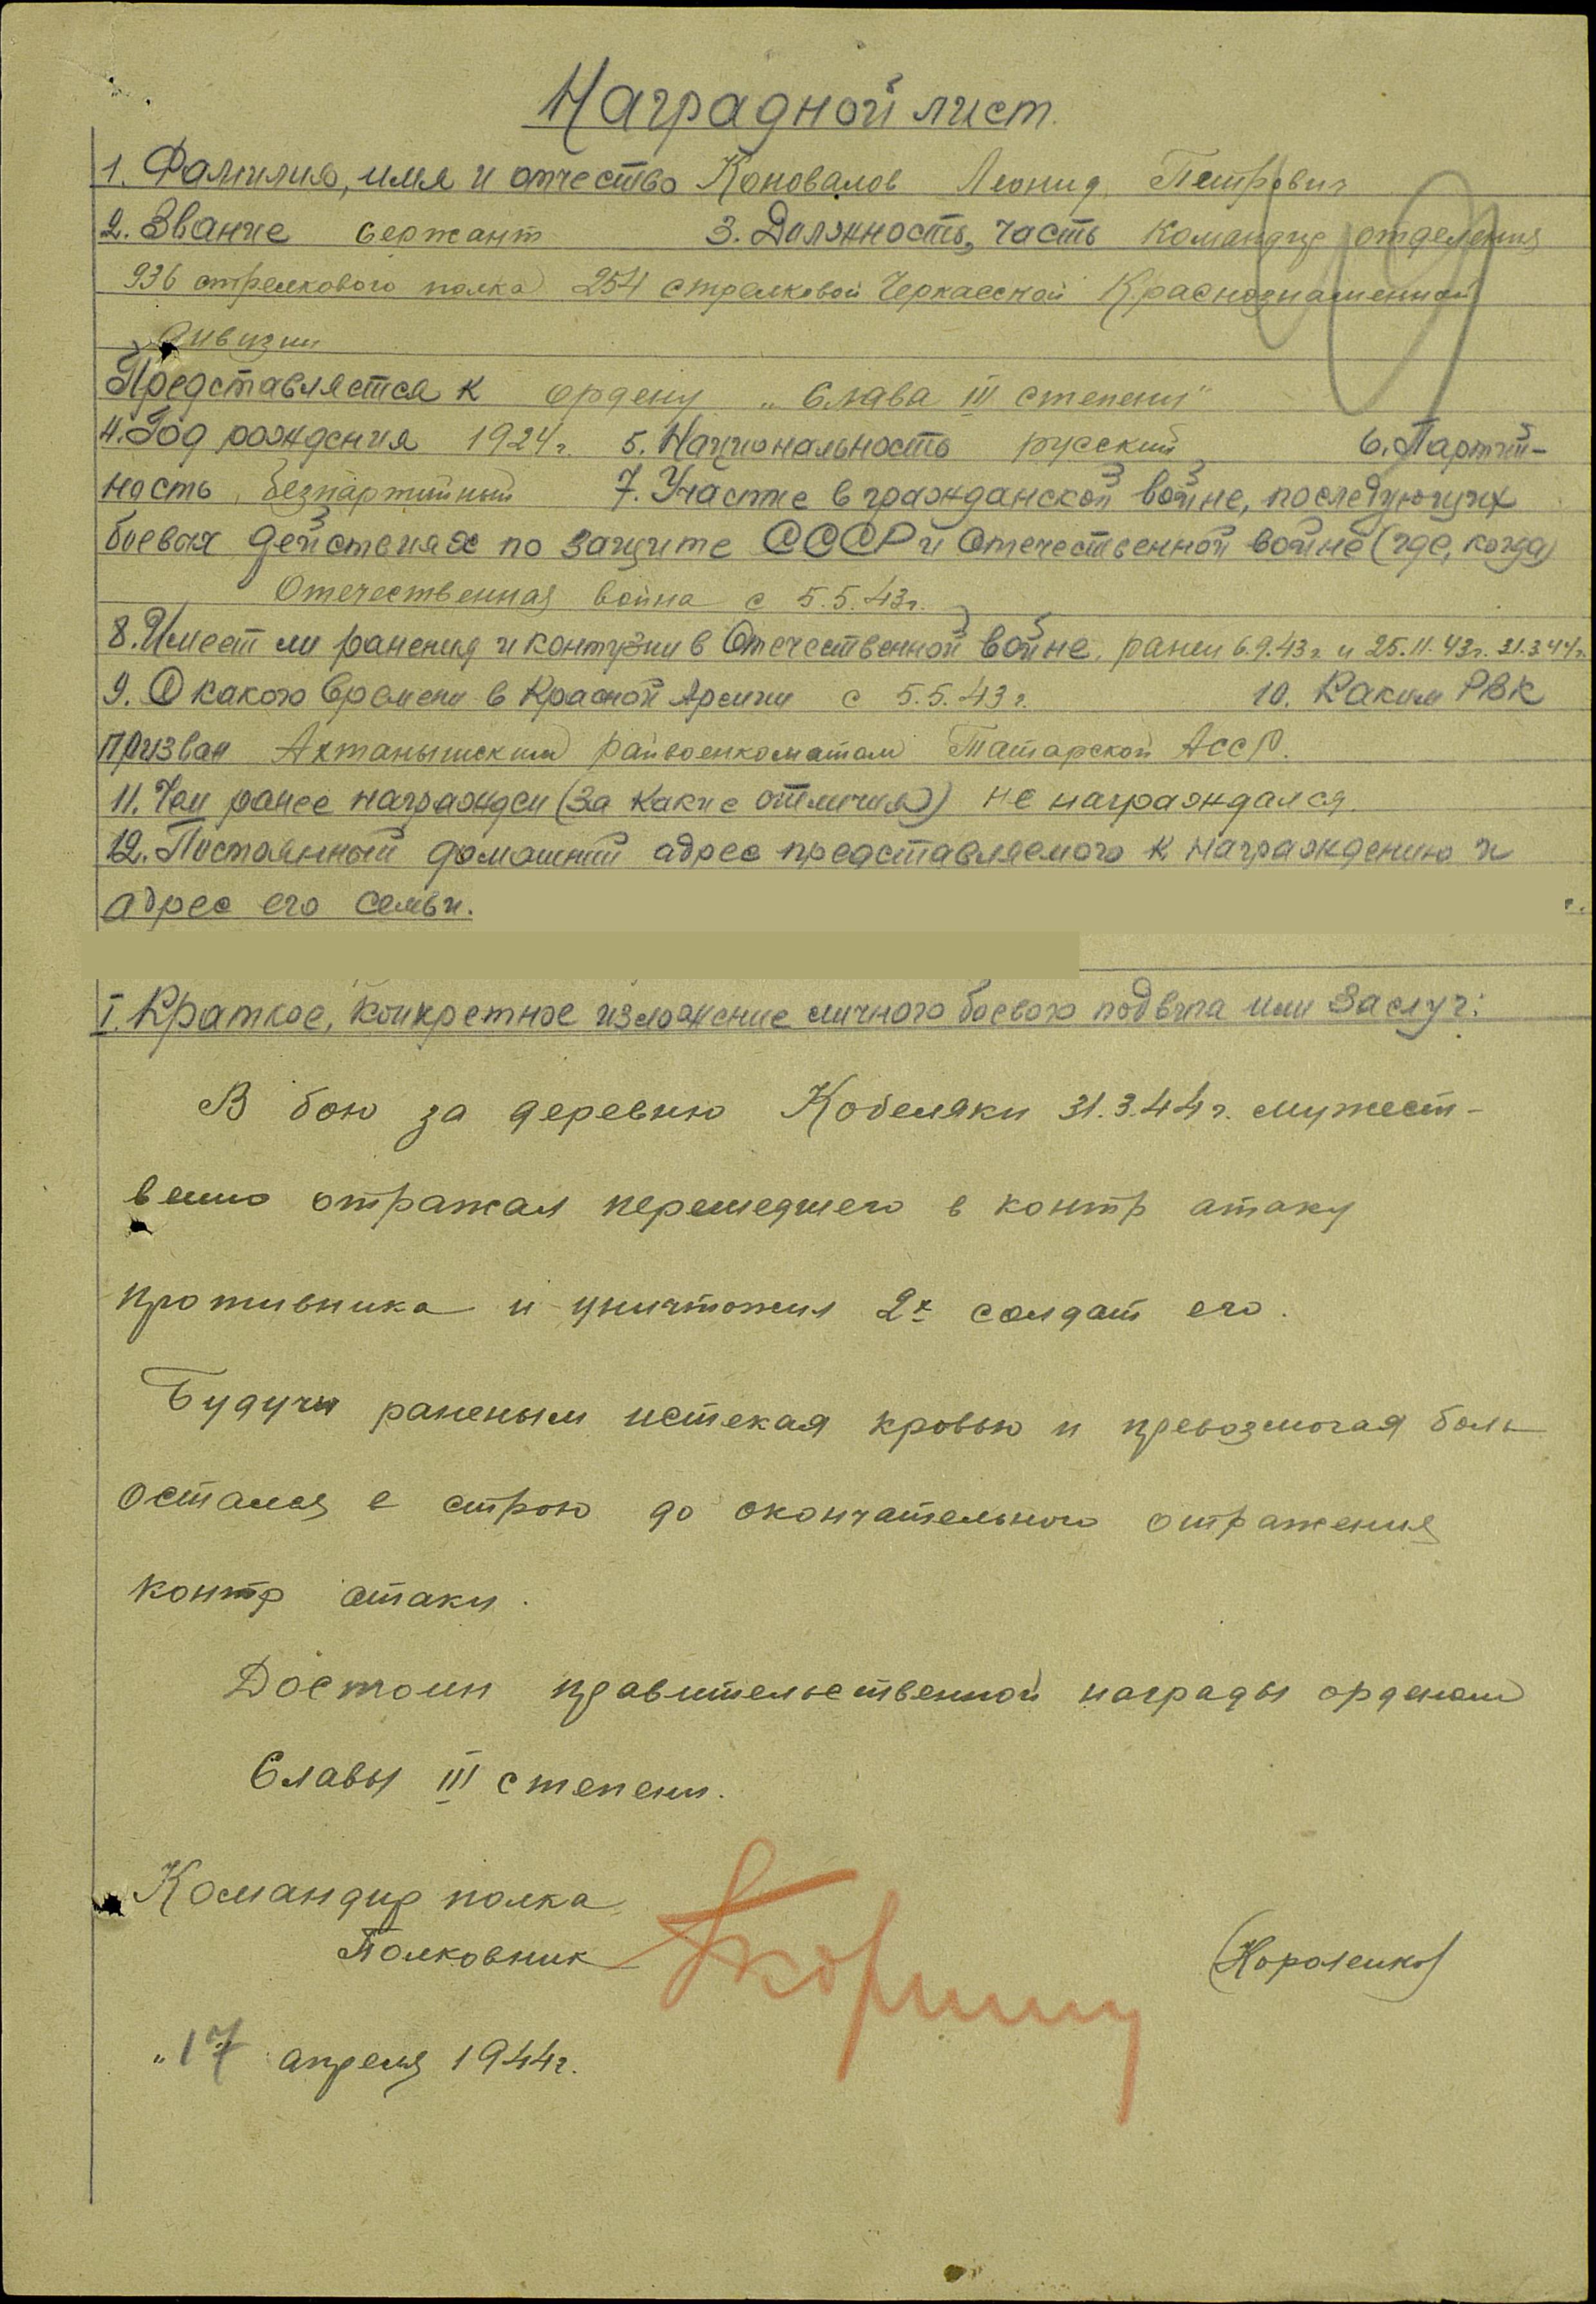 Наградной лист.
1. Фамилия, имя и отчество Коновалов Леонид Петрович
2. Звание сержант 3. Должность, часть командир отделения
936 стрелкового полка 254 стрелковой Черкасской Краснознаменной
дивизии
Представляется к ордену „Слава III степени"
4. Год рождения 1924г. 5. Национальность русский 6. Партий-
ность, безпартийный 7. Участие в гражданской войне, последующих
боевых действиях по защите СССР и Отечественной войне (где, когда)
Отечественная война с 5.5.43г.
8. Имеет ли ранения и контузии в Отечественной войне, ранен 6.9.43г. и 25.11.43г. 31.3.44г.
9. С какого времени в Красной Армии с 5.5.43г. 10. Каким РВК
призван Актанышским райвоенкоматом Татарской АССР.
11. Чем ранее награжден (за какие отличия) не награждался.
12. Постоянный домашний адрес представляемого к награждению и
адрес его семьи.
I. Краткое, конкретное изложение личного боевого подвига или заслуг:
В бою за деревню Кобеляки 31.3.44г. мужест-
венно отражал перешедшего в контр атаку
противника и уничтожил 2х солдат его.
Будучи раненым истекая кровью и превозмогая боль
остался в строю до окончательного отражения
контр атаки.
Достоин правительственной награды орденом
Славы III степени.
Командир полка
Полковник (Короленко)
„17 апреля 1944г.